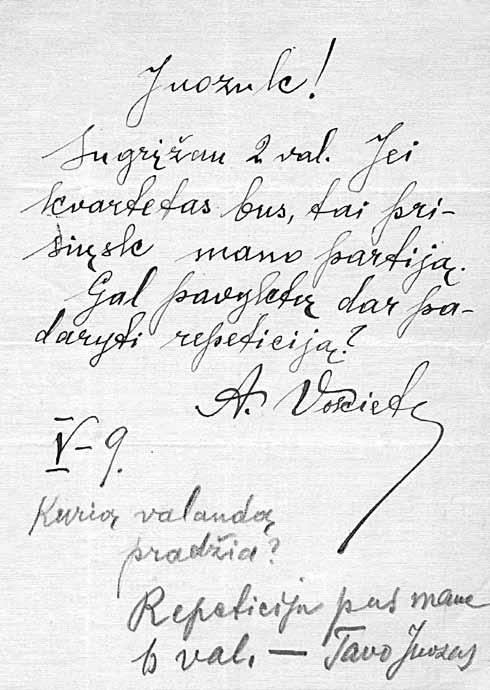 Juozuk!
Sugrįžau 2 val. Jei
kvartetas bus, tai pri-
siųsk mano partiją.
Gal pavyktų dar pa-
daryti repeticiją?
A.
V–9.
Kurią valandą
pradžia?
Repeticija pas mane
6 val. — Tavo Juozas